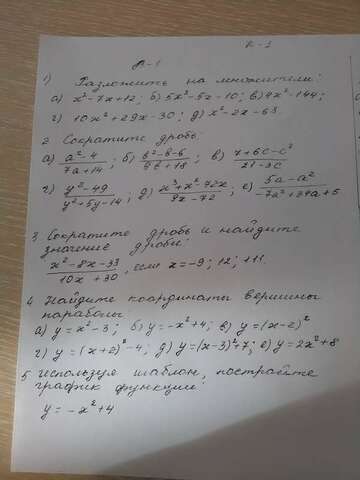 К-1
А-1
1) Разложить на множители:
а) x²-7x+12; б) 5x²-5x-10; в) 4x²-144;
г) 10x²+29x-30; д) x²-2x-63.
2 Сократите дробь:
а) (a²-4)/(7a+14); б) (b²-b-6)/(9b+18); в) (7+6c-c²)/(21-3c)
г) (y²-49)/(y²+5y-14); д) (x³+x²-72x)/(9x-72); е) (5a-a²)/(-7a²+34a+5)
3. Сократите дробь и найдите
значение дроби:
(x²-8x-33)/(10x+30), если x=-9; 12; +11.
4 Найдите координаты вершины
параболы
а) y=x²-3; б) y=-x²+4; в) y=(x-2)²
г) y=(x+2)²-4; д) y=(x-3)²+7; е) y=2x²+8
5 используя шаблон, постройте
график функции:
y=-x²+4